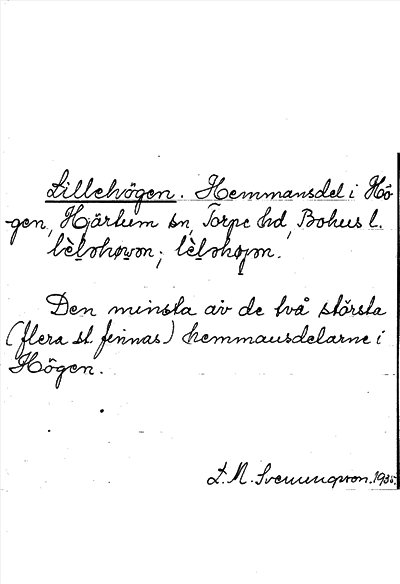 Lillehögen. Hemmansdel i Hö-
gen, Hjärtum sn, Torpe hd, Bohus l.
lèl̬əhøwən; lèl̬əhøjən.
Den minsta av de två största
(flera st. finnas) hemmansdelarne i
Högen.
L. M. Svenungsson. 1935.